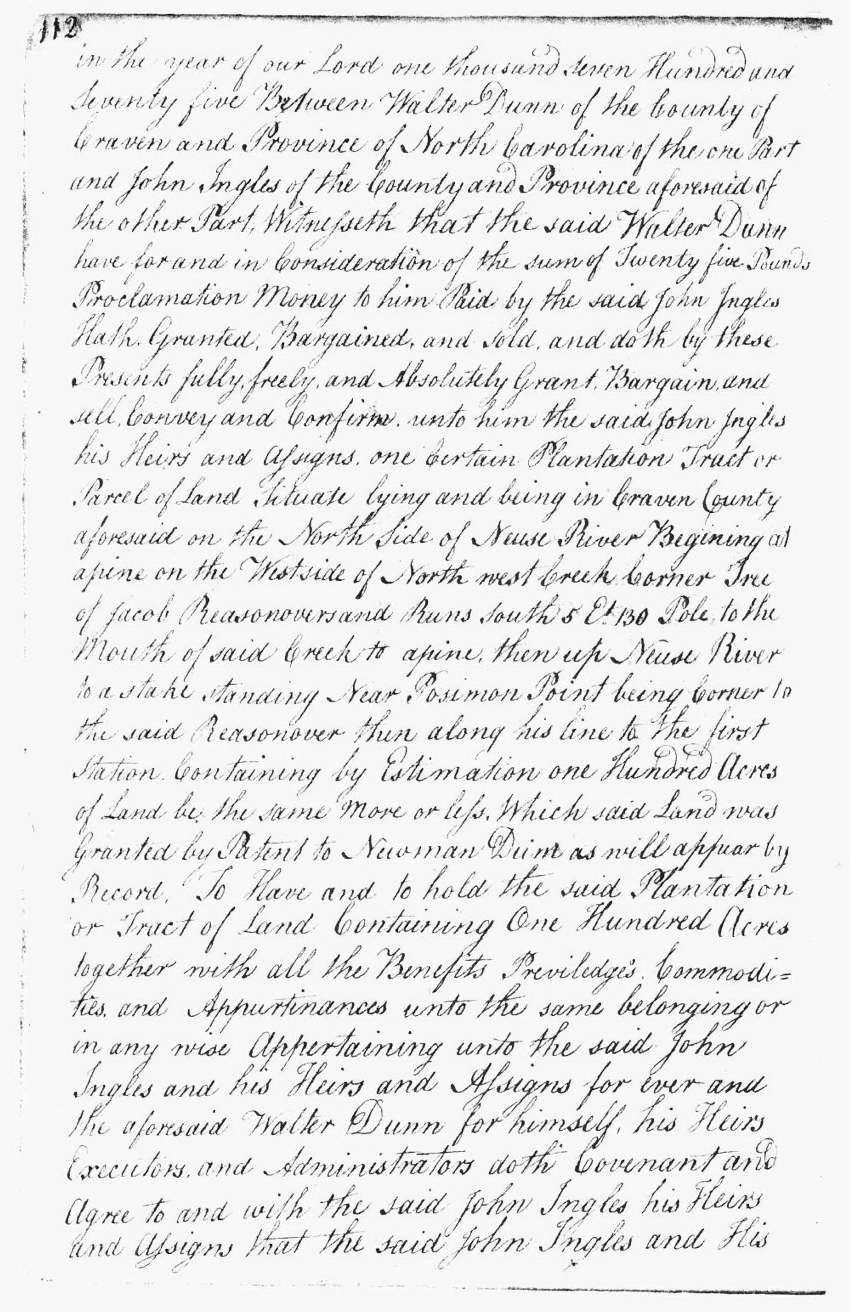 112
in the year of our Lord one thousand seven Hundred and
Seventy five Between Walter Dunn of the County of
Craven and Province of North Carolina of the one Part
and John Ingles of the County and Province aforesaid of
the other Part, Witnesseth that the said Walter Dunn
have for and in Consideration of the sum of Twenty five Pounds
Proclamation Money to him Paid by the said John Ingles
Hath, Granted, Bargained, and Sold, and doth by these
Presents fully, freely, and Absolutely Grant, Bargain, and
sell, Convey and Confirm, unto him the said John Ingles
his Heirs and Assigns, one Certain Plantation Tract or
Parcel of Land Situate lying and being in Craven County
aforesaid on the North Side of Neuse River Begining at
a pine on the West side of North west Creek Corner Tree
of Jacob Reasonovers and Runs South 5 Et 130 Pole, to the
Mouth of said Creek to a pine, then up Neuse River
to a stake standing Near Posimon Point being Corner to
the said Reasonover then along his line to the first
Station, Containing by Estimation one Hundred Acres
of Land be, the same More or less, Which said Land was
Granted by Patent to Newman Dunn as will appear by
Record, To Have and to hold the said Plantation
or Tract of Land Containing One Hundred Acres
together with all the Benefits Previledges, Commodi=
ties, and Appurtinances unto the same belonging or
in any wise Appertaining unto the said John
Ingles and his Heirs and Assigns for ever and
the aforesaid Walter Dunn for himself, his Heirs
Executors, and Administrators doth Covenant and
Agree to and with the said John Ingles his Heirs
and Assigns that the said John Ingles and His